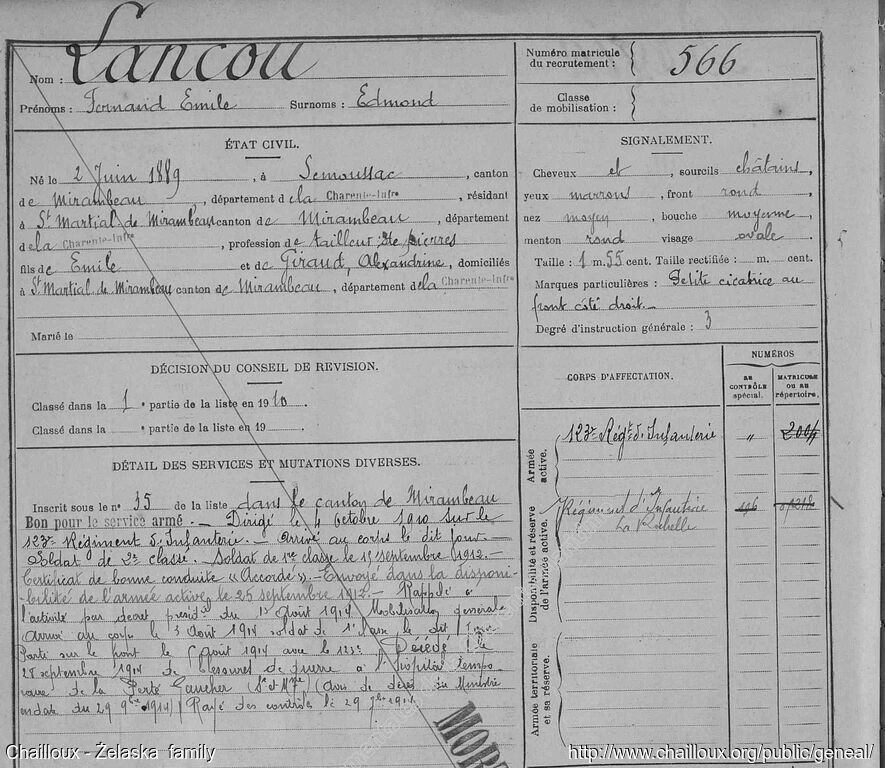 Nom : Lancou
Prénoms : Fernand Emile Surnoms : Edmond
Numéro matricule du recrutement : 566
Classe de mobilisation :
ÉTAT CIVIL.
Né le 2 Juin 1889, à Semoussac, canton
de Mirambeau, département de la Charente-Infre, résidant
à St Martial de Mirambeau canton de Mirambeau, département
de la Charente-Infre, profession de tailleur de pierres
fils de Emile et de Giraud, Alexandrine, domiciliés
à St Martial de Mirambeau canton de Mirambeau, département de la Charente-Infre
Marié le
SIGNALEMENT.
Cheveux et sourcils châtains
yeux marrons, front rond
nez moyen, bouche moyenne
menton rond visage ovale
Taille : 1 m. 55 cent. Taille rectifiée : m. cent.
Marques particulières : Petite cicatrice au
front côté droit.
Degré d'instruction générale : 3
DÉCISION DU CONSEIL DE REVISION.
Classé dans la 1e partie de la liste en 1910
Classé dans la e partie de la liste en 19
DÉTAIL DES SERVICES ET MUTATIONS DIVERSES.
Inscrit sous le n° 35 de la liste dans le canton de Mirambeau
Bon pour le service armé. - Dirigé le 4 Octobre 1910 sur le
123e Régiment d'Infanterie. - Arrivé au corps le dit jour.
Soldat de 2e classe. Soldat de 1re classe le 15 septembre 1912.
Certificat de bonne conduite « Accordé ». - Envoyé dans la disponi-
bilité de l'armée active, le 25 septembre 1912. - Rappelé à
l'activité par décret présid. du 1 Août 1914 Mobilisation générale
Arrivé au corps le 3 Août 1914 soldat de 1e classe le dit jour
Parti sur le front le 6 Août 1914 avec le 123e Décédé le
28 septembre 1914 de blessures de guerre à l'hôpital tempo
raire de la Ferté Gaucher (Se et Mne) (Avis de décès du Ministère
en date du 29 9bre 1914) Rayé des contrôles le 29
CORPS D'AFFECTATION.
NUMÉROS
AU CONTRÔLE spécial.
MATRICULE OU AU répertoire.
Armée active.
123e Régt d'Infanterie " 2004
Disponibilité et réserve de l'armée active.
Régiment d'Infanterie
La Rochelle
Armée territoriale et sa réserve.
MOR
Chailloux - Želaska family
http://www.chailloux.org/public/geneal/